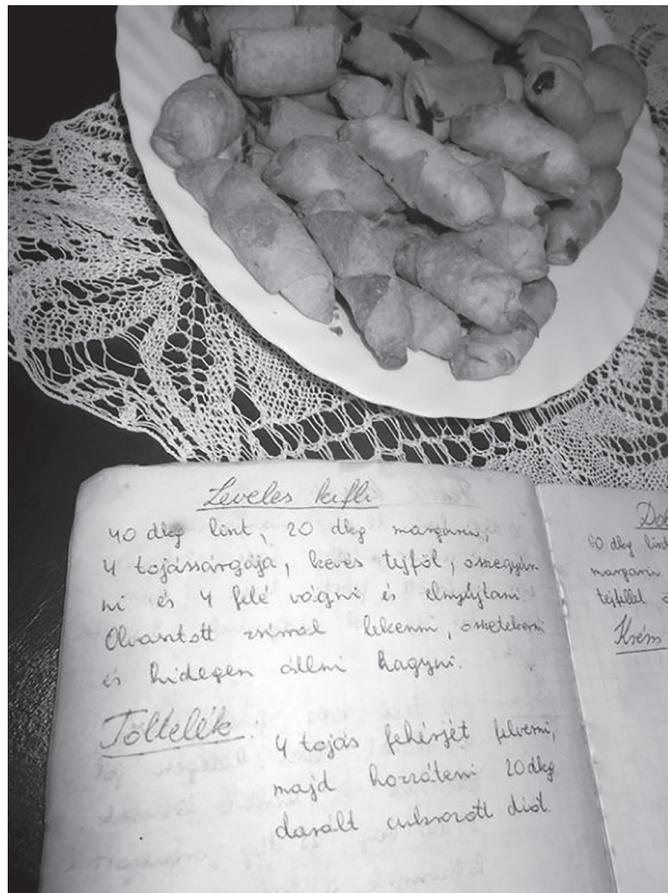 Leveles kifli
40 dkg lisrt, 20 dkg margarin,
4 tojássárgája, kevés tejföl, összegyúr-
ni és 4 felé vágni és elnyújtani.
Olvasztott zsírral lekenni, összetekerni
és hidegen állni hagyni.
Töltelék
4 tojás fehérjét felverni,
majd hozzátenni 20dkg
darált cukrozott diót.
60 dkg
margarin
tejfellel
Krém